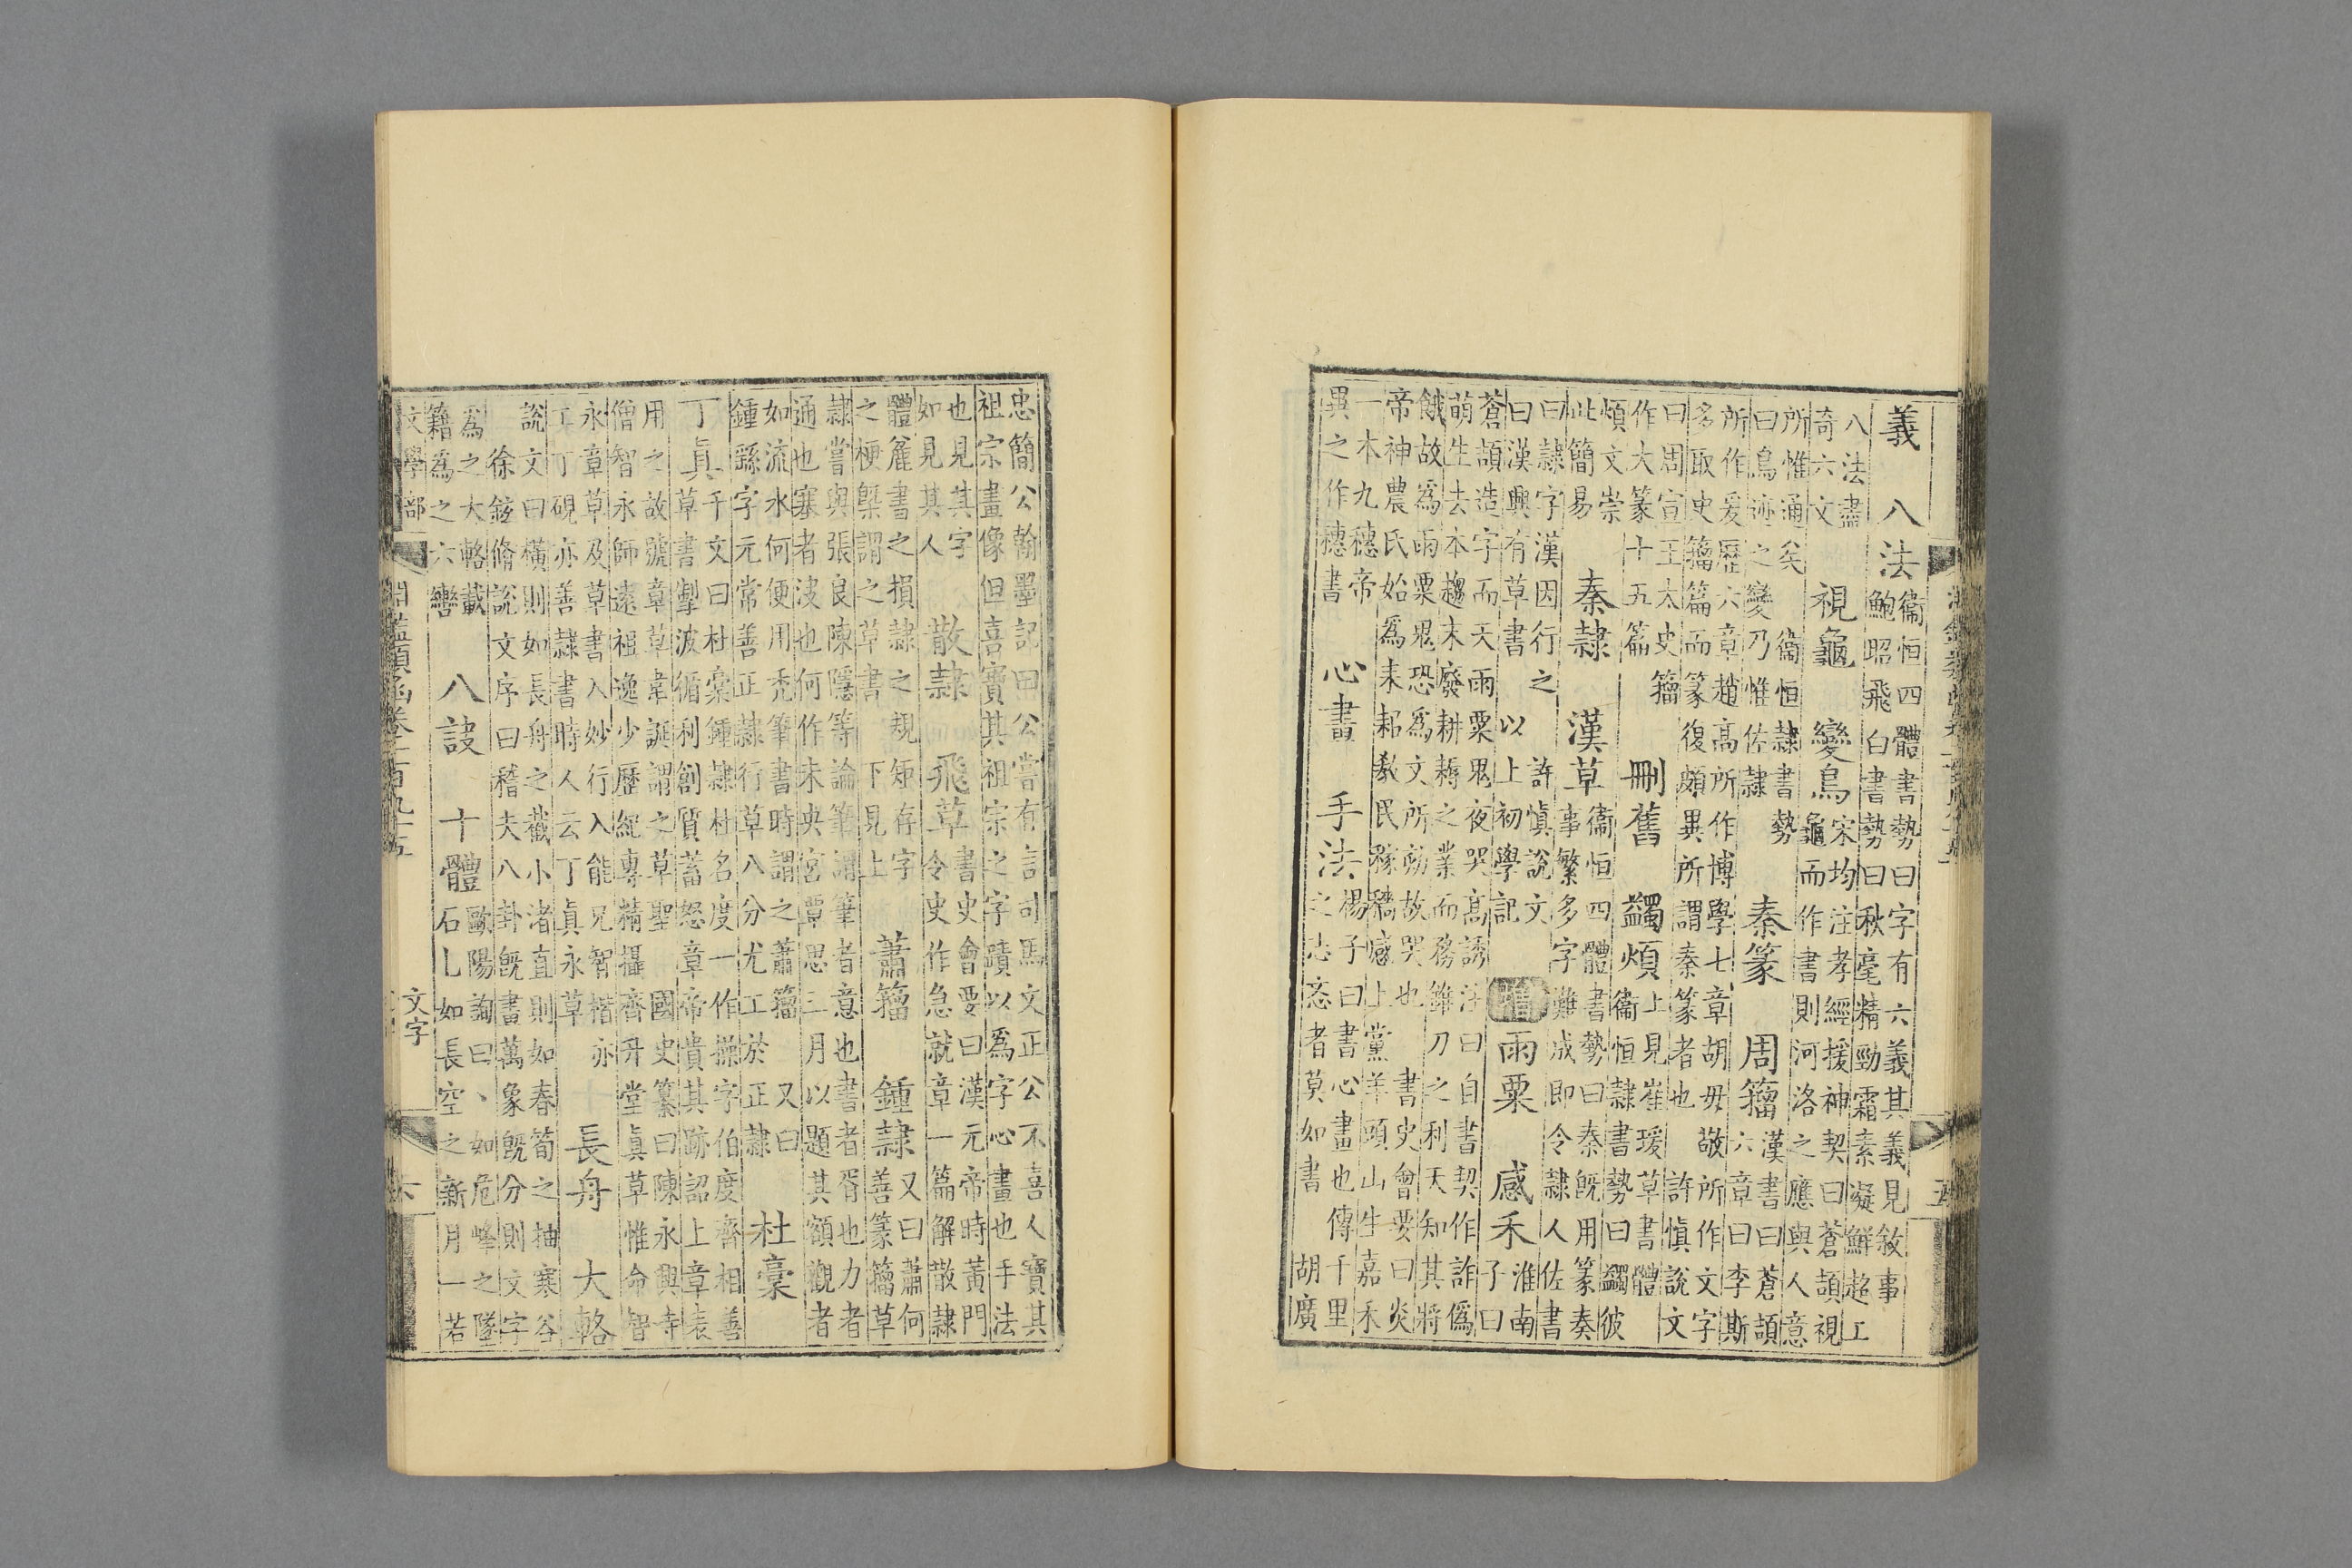 義　八法衞恒四體書勢曰字有六義其義見敘事
鮑昭飛白書勢曰秋毫精勁霜素凝鮮超工
八法盡
奇六文　視龜　變鳥宋均注孝經援神契曰蒼頡視
龜而作書則河洛之應與人意
所惟通矣　衞恒隸書勢
曰鳥迹之變乃惟佐隸　秦篆　周籀漢書曰蒼頡
六章曰李斯
所作爰歷六章趙高所作博學七章胡毋敬所作文字
多取史籀篇而篆復頗異所謂秦篆者也　許慎說文
曰周宣王太史籀
作大篆十五篇　刪舊　蠲煩上見崔瑗草書體
衞恒隸書勢曰蠲彼
煩文崇
此簡易　秦隸　漢草衞恒四體書勢曰秦既用篆奏
事繁多字難成即令隸人佐書
曰隸字漢因行之　許慎說文
曰漢興有草書　以上初學記　增雨粟　感禾淮南
子曰
蒼頡造字而天雨粟鬼夜哭高誘注曰自書契作詐僞
萌生去本趨末廢耕耨之業而務錐刀之利天知其將
餓故爲雨粟鬼恐爲文所劾故哭也　書史會要曰炎
帝神農氏始爲耒耜教民稼穡感上黨羊頭山生嘉禾
一本九穗帝
異之作穗書　心書　手法楊子曰書心畫也傳千里
之忞忞者莫如書　胡廣
忠簡公翰墨記田公嘗有言司馬文正公不喜人寶其
祖宗畫像但喜寶其祖宗之字蹟以爲字心畫也手法
也見其字
如見其人　散隸　飛草書史會要曰漢元帝時黃門
令史作急就章一篇解散隸
體麄書之損隸之規矩存字
之梗槩謂之草書　下見上　蕭籀　鍾隸又曰蕭何
善篆籀草
隸嘗與張良陳隱等論筆謂筆者意也書者胥也力者
通也寒者決也何作未央宮覃思三月以題其額觀者
如流水何便用禿筆書時謂之蕭籀　又曰
鍾繇字元常善正隸行草八分尤工於正隸　杜稾
丁眞千文曰杜稾鍾隸杜名度一作操字伯度齊相善
草書掣波循利創質蓄怒章帝貴其跡詔上章表
用之故號章草韋誕謂之草聖　國史纂曰陳永興寺
僧智永師遠祖逸少歷紀專精攝齊升堂眞草惟命智
永章草及草書入妙行入能兄智楷亦
工丁覘亦善隸書時人云丁眞永草　長舟　大輅
說文曰橫則如長舟之截小渚直則如春筍之抽寒谷
徐鉉脩說文序曰稽夫八卦既書萬象既分則文字
爲之大輅載
籍爲之六轡　八訣　十體歐陽詢曰丶如危峰之墜
石乚如長空之新月一若
文學部
淵鑑類函卷一百九十五
文字
六